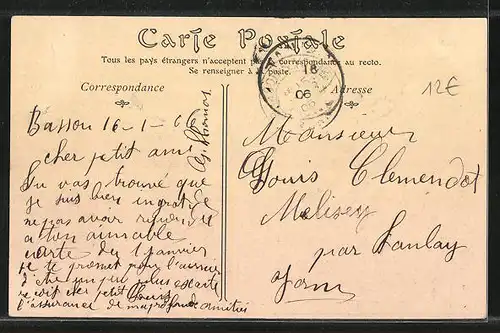 Carte Postale
Tous les pays étrangers n'acceptent pas la correspondance au recto.
Se renseigner à la poste.
Correspondance
Adresse
18
06
12€
Basson 16-1-6
cher petit ami
Tu vas trouvé que
je suis bien ingrat de
ne pas avoir répondu
a ton aimable
carte du 1 janvier
je te promet pour l'avenir
d'être un peu plus
petit
l'assurance de ma amitié
Monsieur
Louis Clemendot
Melisey
par Tanlay
Yonne